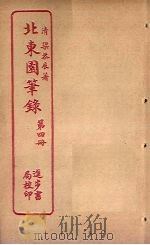 清 梁恭辰著
北東園筆錄
第四冊
進步書
局校印